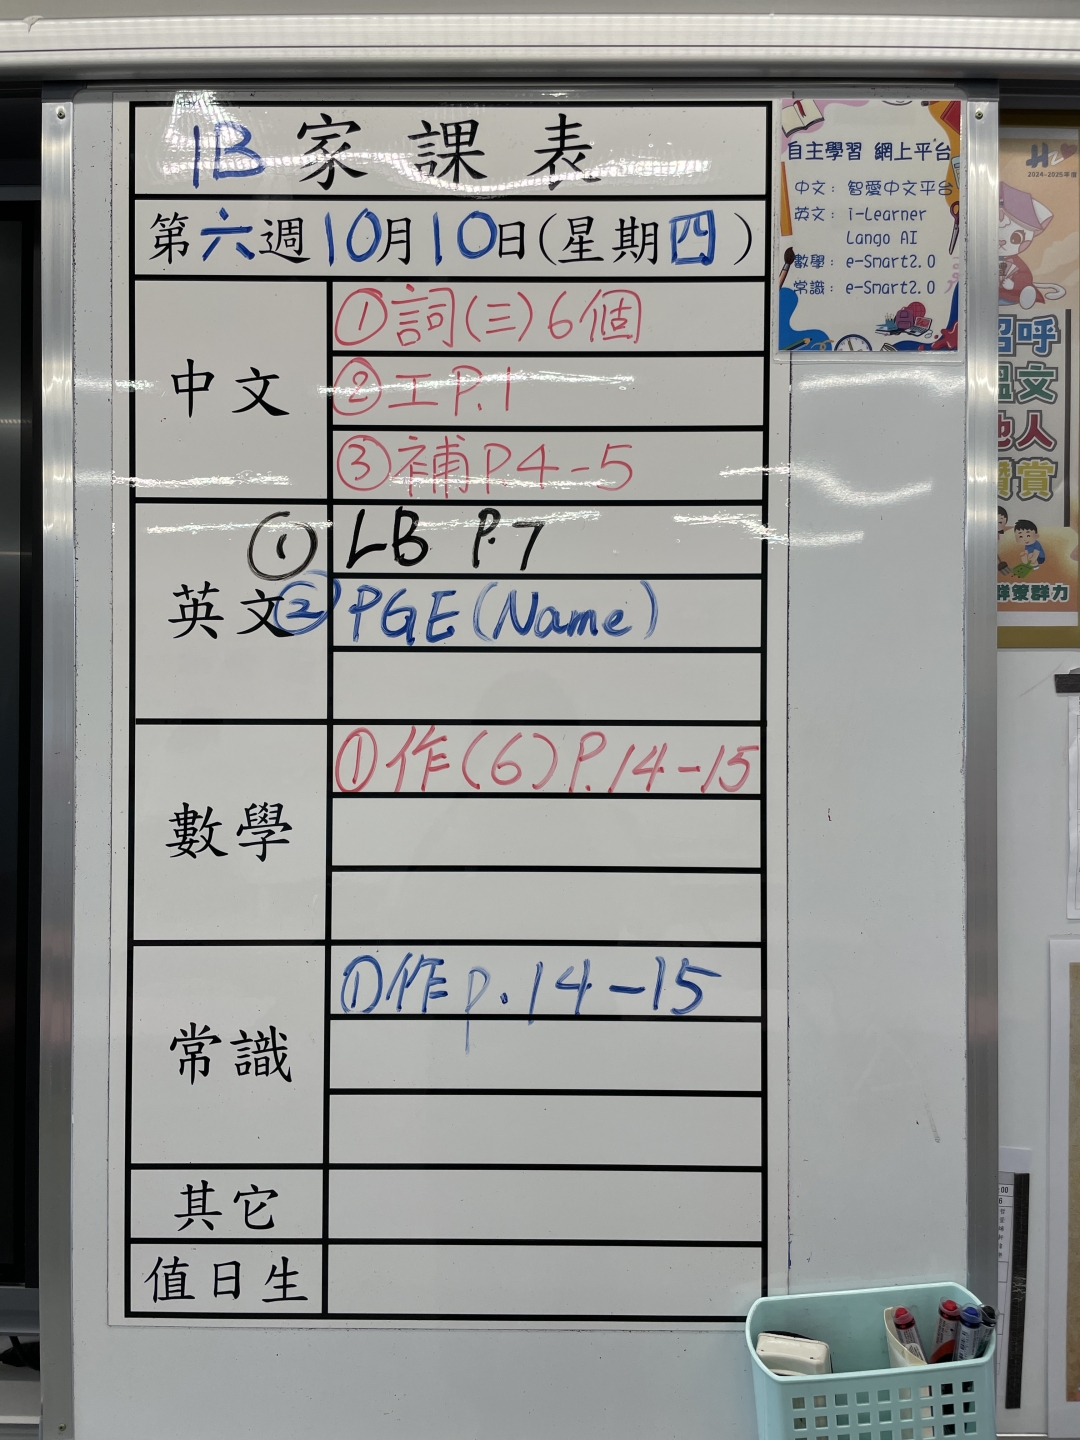 1B 家課表
第六週10月10日(星期四)
中文
①詞(三)6個
②工P.1
③補P4-5
英文
① LB P.7
② PGE(Name)
數學
①作(6)P.14-15
常識
①作p.14-15
其它
值日生
自主學習 網上平台
中文: 智愛中文平台
英文: i-Learner
Lango AI
數學: e-Smart2.0
常識: e-Smart2.0
2024-2025年度
呼
文
人
賞
群策群力